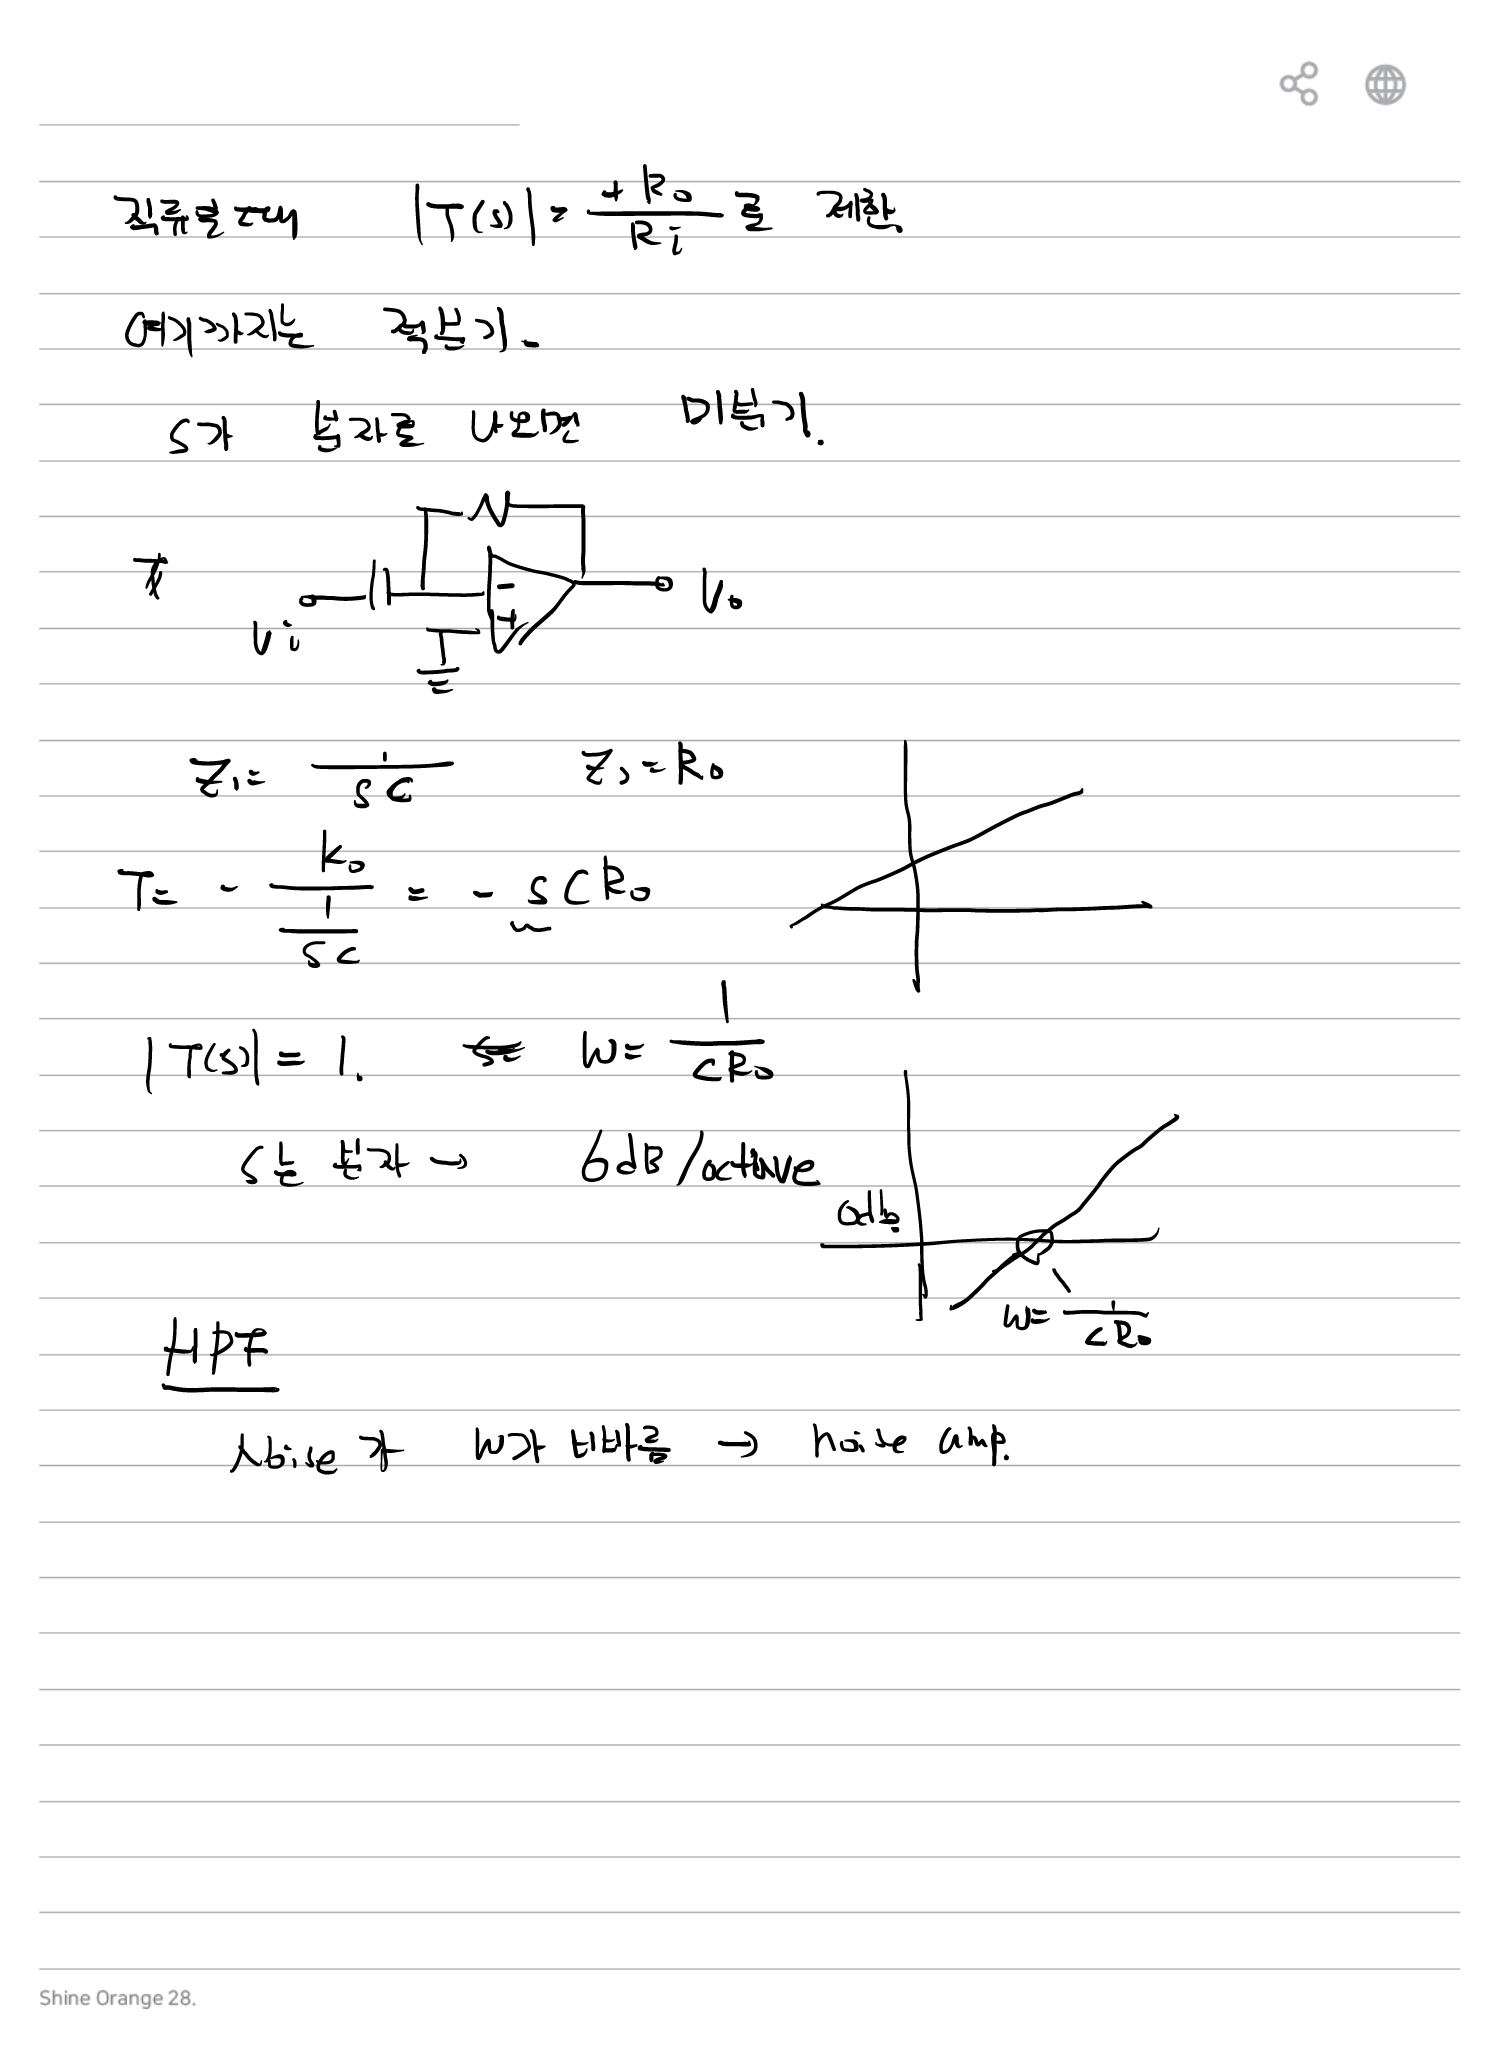 직류일 때 |T(s)| = +Ro/Ri 로 제한.
여기까지는 적분기.
s가 분자로 나오면 미분기.
- +
Vi Vo
Z1 = 1/SC Z2 = Ro
T = - Ro/(1/SC) = - SCRo
|T(s)| = 1. W = 1/CRo
S는 분자 → 6dB/octave
0db
W = 1/CRo
HPF
Noise가 W가 비바름 → noise amp.
Shine Orange 28.